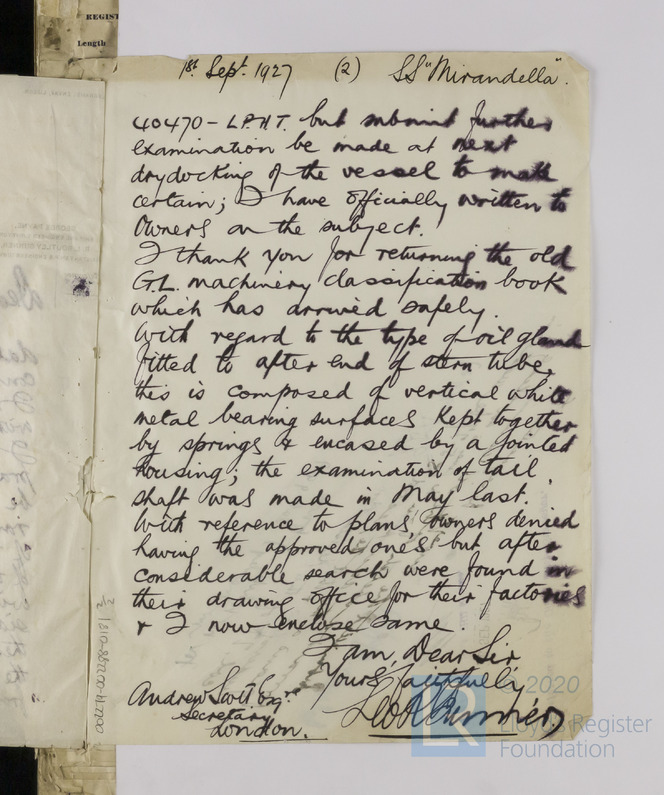 REGIST
Length
1st Sept. 1927 (2) SS "Mirandella".
40470 - L.P.H.T. but submit further
examination be made at next
drydocking of the vessel to make
certain; I have officially written to
Owners on the subject.
I thank you for returning the old
G.L. machinery classification book
which has arrived safely.
With regard to the type of oil gland
fitted to after end of stern tube,
this is composed of vertical white
metal bearing surfaces kept together
by springs & encased by a jointed
housing; the examination of tail
shaft was made in May last.
With reference to plans owners denied
having the approved one's but after
considerable search were found in
their drawing office for their factories
& I now enclose same.
I am, Dear Sir
Yours faithfully
Andrew Scott Esqre
Secretary
London.
© 2020
LR
Lloyd's Register
Foundation